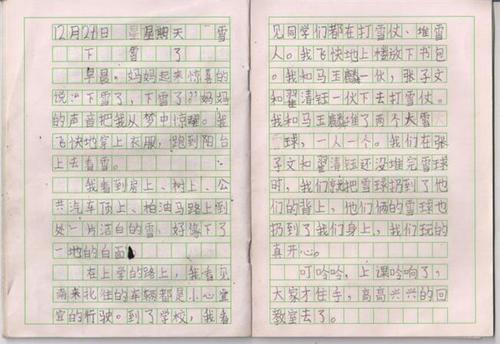 12月21日 星期天 雪
下雪了
早晨。妈妈起来惊喜的
说:“下雪了,下雪了!”妈妈
的声音把我从梦中惊醒。我
飞快地穿上衣服,跑到阳台
上去看雪。
我看到房上、树上、公
共汽车顶上、柏油马路上到
处一片洁白的雪,好像下了
一地的白面
在上学的路上,我看见
南来北往的车辆都是小心翼
翼的行驶。到了学校,我看
见同学们都在打雪仗、堆雪
人。我飞快地上楼放下书包
。我和马王麟一伙,张子文
和翟清钰一伙下去打雪仗。
我和马王麟堆了两个大雪
球,一人一个。我们在张
子文和翟清钰还没堆完雪球
时,我们就把雪球扔到了他
们的背上,他们俩的雪球也
扔到了我们身上,我们玩的
真开心。
叮呤呤,上课呤响了,
大家才住手,高高兴兴的回
教室去了。